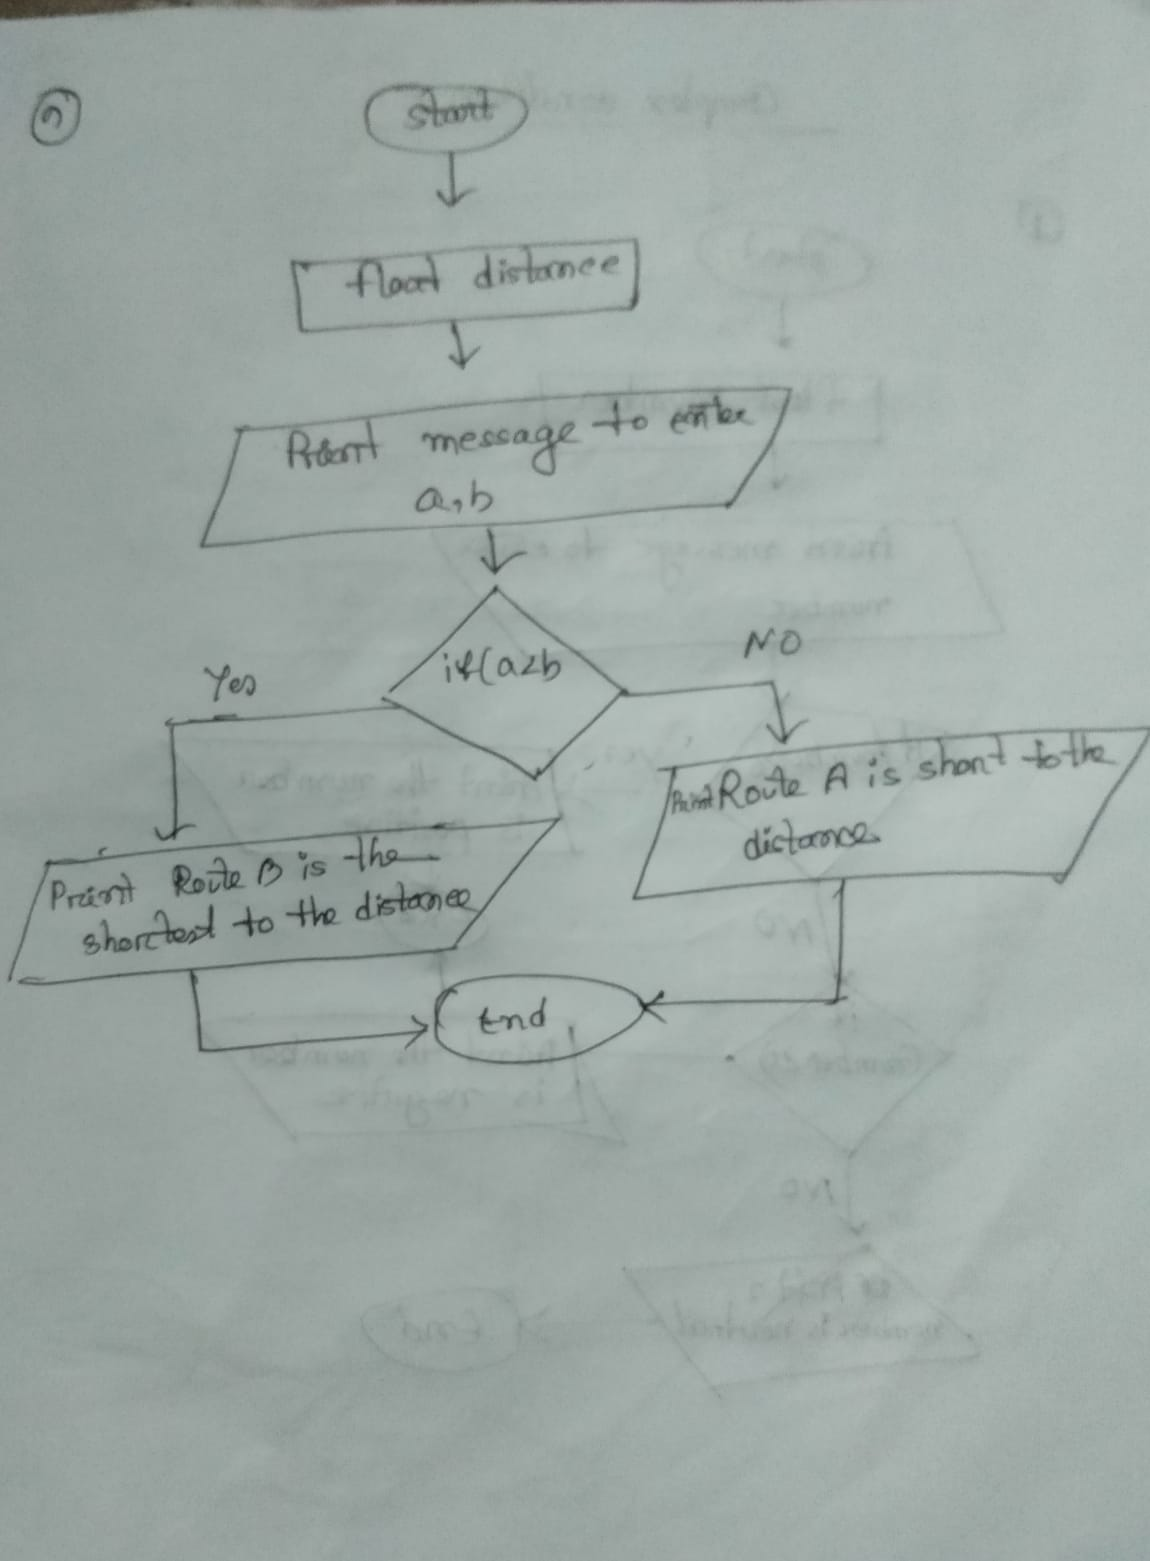 Start
float distance
Print message to enter
a,b
if(a<b
Yes
NO
Print Route A is short to the
distance
Print Route B is the
shortest to the distance
End